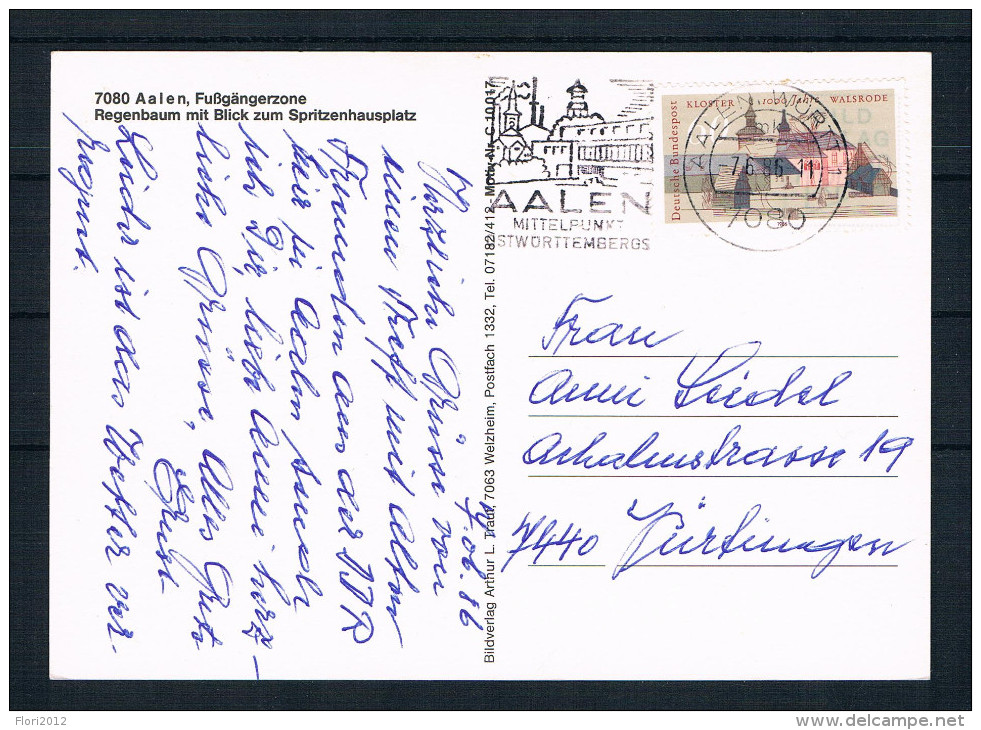 7080 Aalen, Fußgängerzone
Regenbaum mit Blick zum Spritzenhausplatz
7.06.86
Herzliche Grüsse von
einem Treff mit alten
Freunden aus der DDR
hier bei Aalen sende
ich Dir, liebe Anni herz-
liche Grüsse, Alles Gute
Leider ist das Wetter ver-
regnet.
Bildverlag Arthur L. Traut, 7063 Welzheim, Postfach 1332, Tel. 07182/412 Motiv-Nr. C 10.017
AALEN
MITTELPUNKT
OSTWÜRTTEMBERGS
AALEN, WÜRTT 1
-7.6.86-11
7080
Deutsche Bundespost
KLOSTER 1000 Jahre WALSRODE
Frau
Anni Seidel
Achalmstrasse 19
7440 Nürtingen
Flori2012